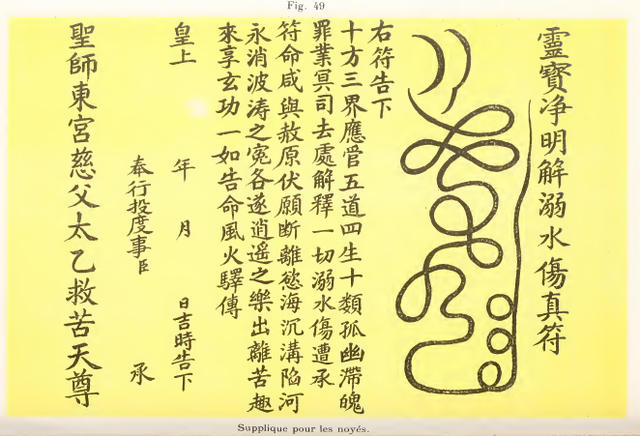 Fig. 49
靈寶净明解溺水傷真符
右符告下
十方三界應管五道四生十類孤幽滯魄
罪業冥司去處解釋一切溺水傷遭承
符命咸與赦原伏願斷離慾海沉溝陷河
永消波涛之寃各遂逍遥之樂出離苦趣
來享玄功一如告命風火驛傳
皇上 年 月 日吉時告下
奉行投度事臣 承
聖師東宮慈父太乙救苦天尊
Supplique pour les noyés.